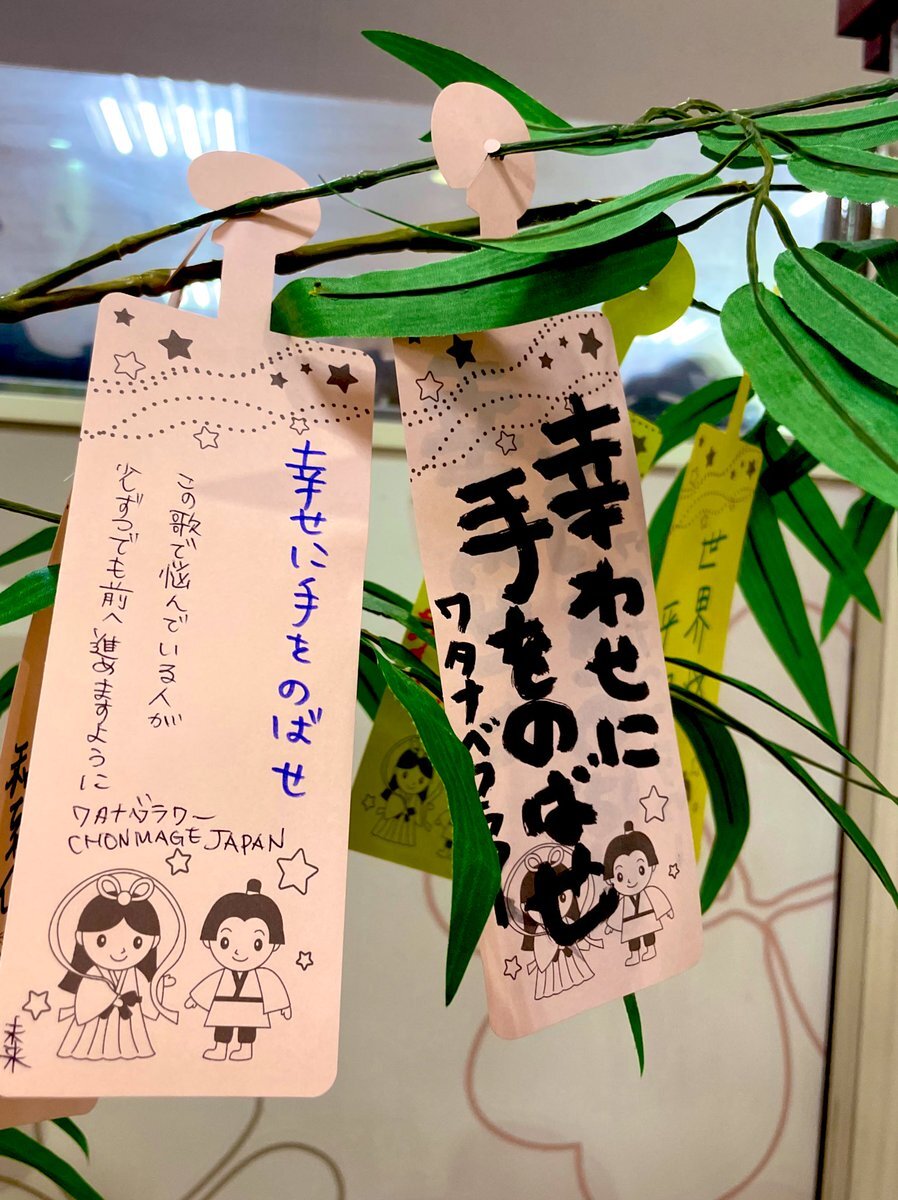 幸せに手をのばせ
この歌で悩んでいる人が
少ずつでも前へ進めますように
ワタナベフラワー
CHONMAGE JAPAN
幸わせに
手をのばせ
ワタナベフラワー
世界
平